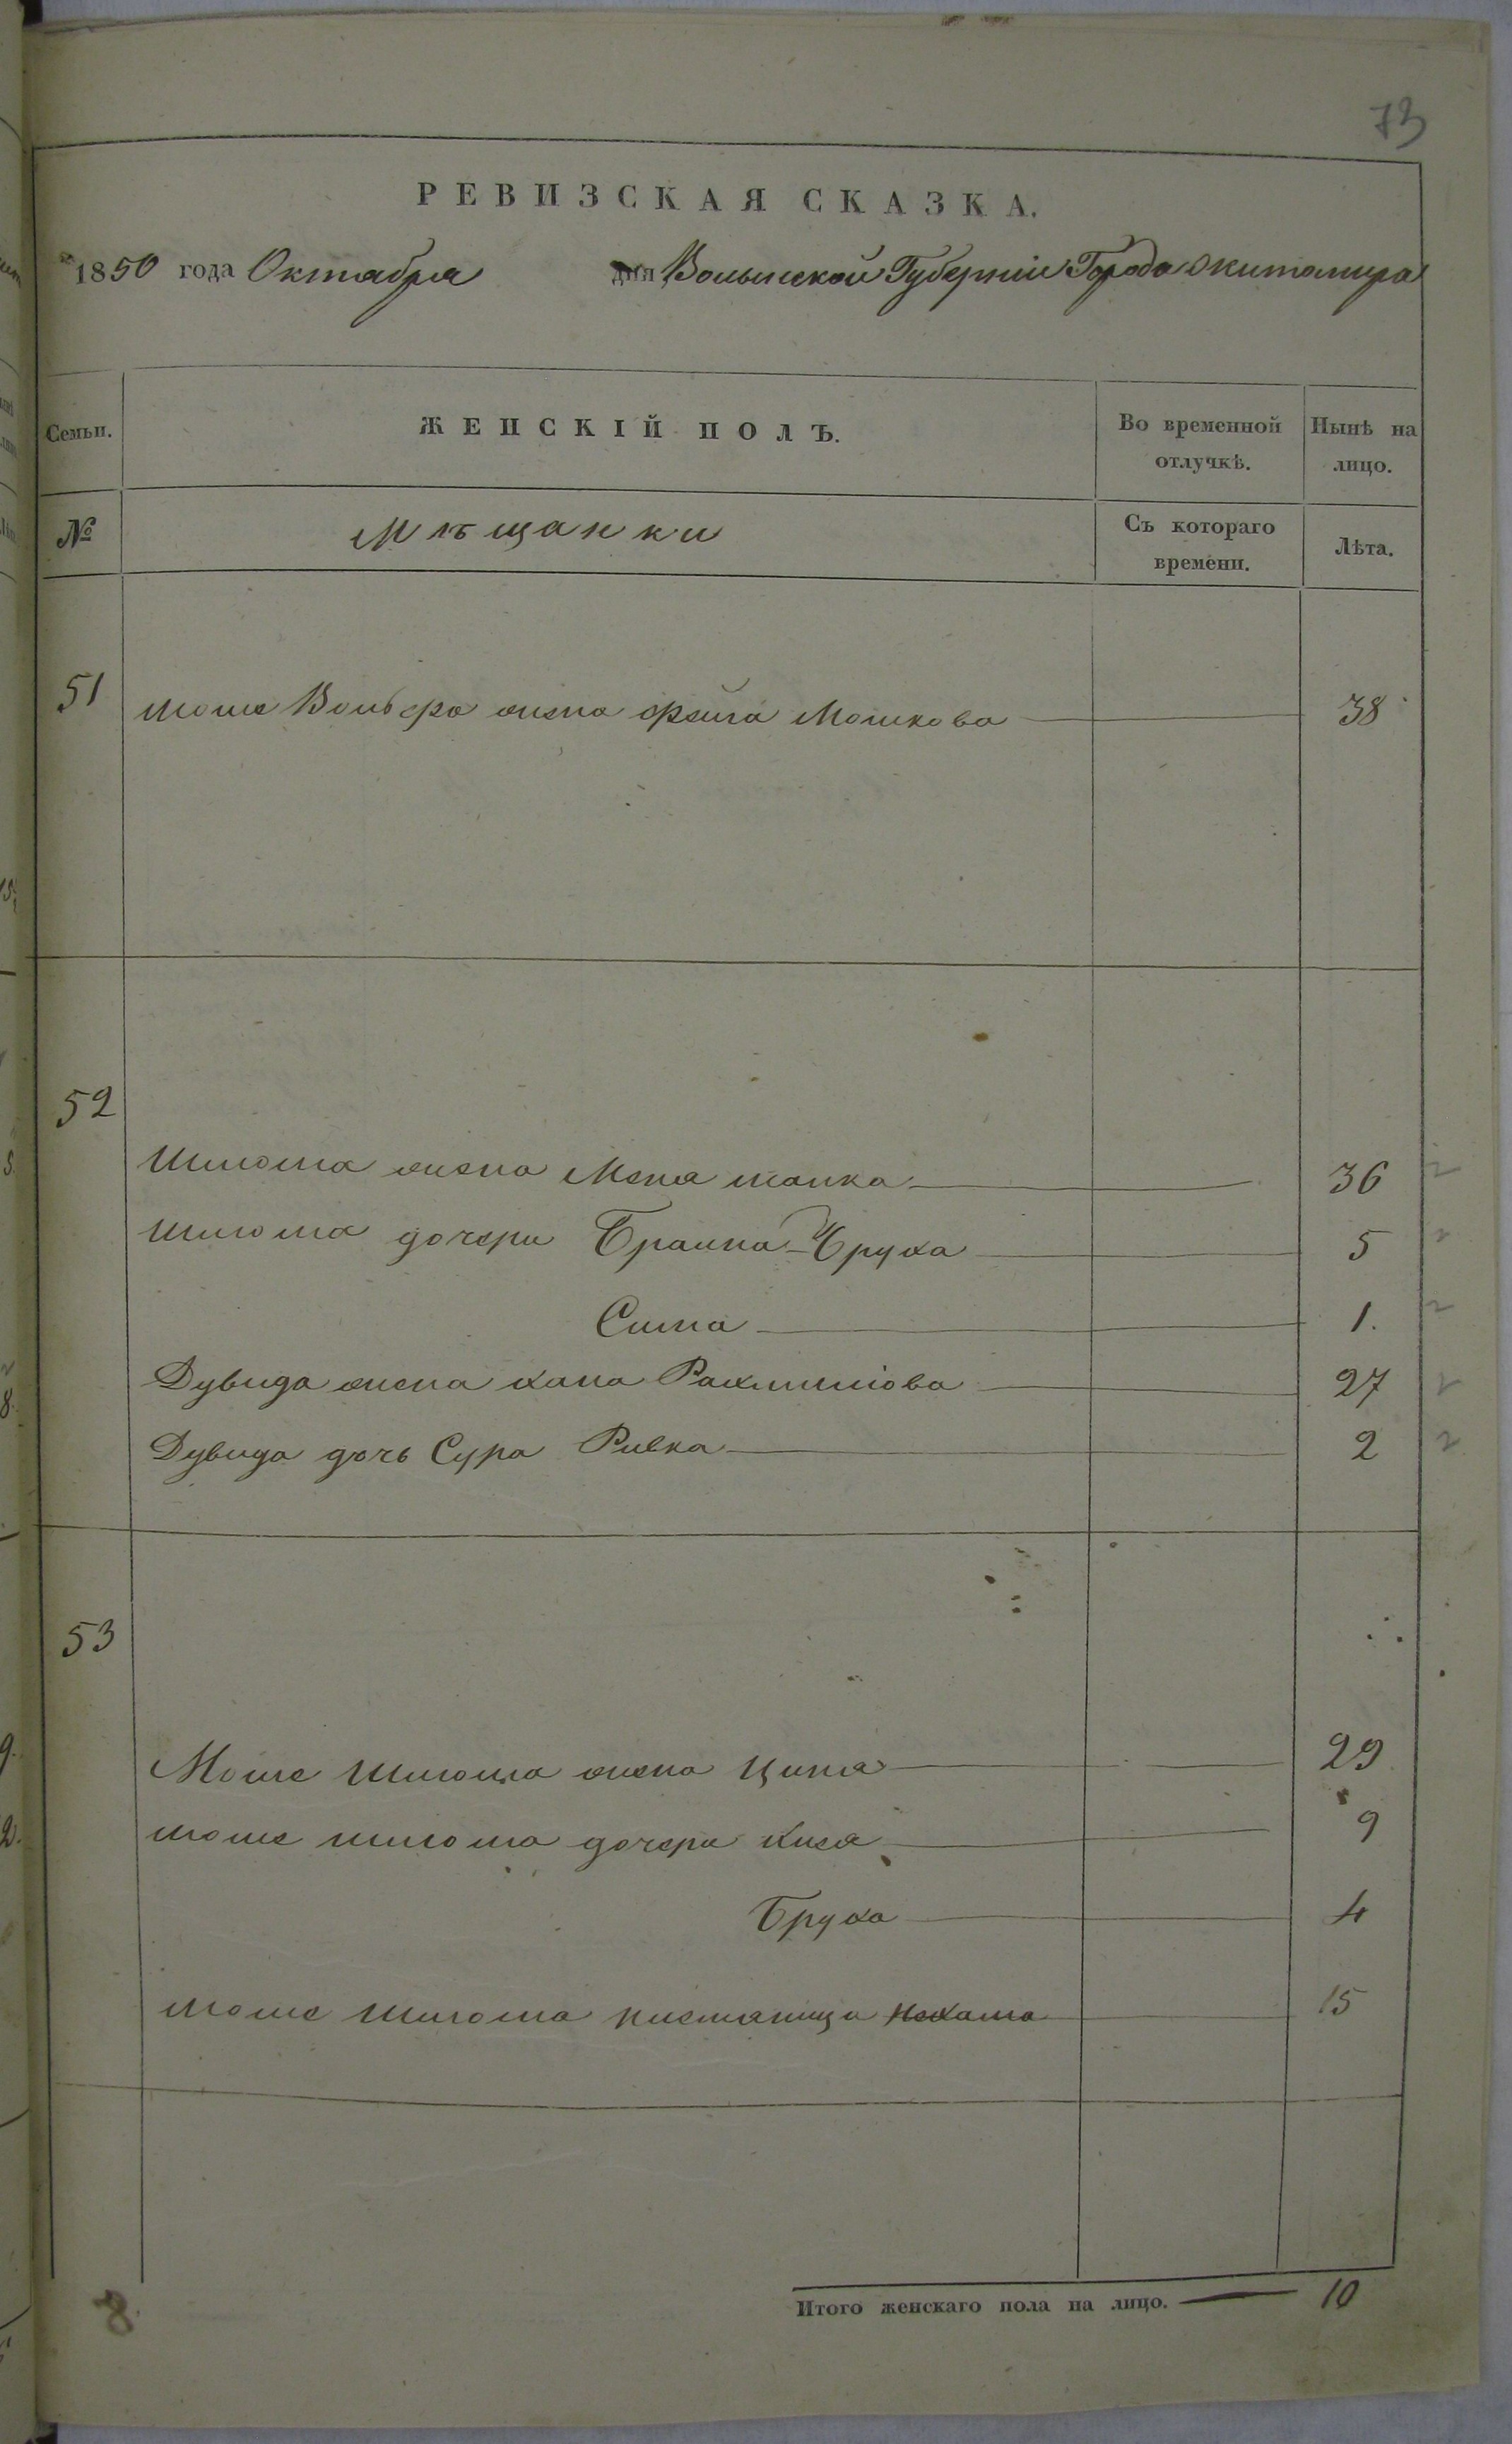 73
РЕВИЗСКАЯ СКАЗКА.
1850 года Октября дня Волынской Губерніи Города Житомира
Семьи. ЖЕНСКІЙ ПОЛЪ. Во временной отлучкѣ. Нынѣ на лицо.
№ Мѣщанки Съ котораго времени. Лѣта.
51 Мошка Вольфа жена Фейга Мошкова 38
52
Шлома жена Меня 36
Шлома дочери Браина-Бруха 5
Сима 1.
Дувида жена Хана Рахмиліова 27
Дувида дочь Сура Ривка 2
53
Моше Шлома жена Ципа 29
Моше Шлома дочери Кися 9
Бруха 4
Моше Шлома племяница Нехама 15
Итого женскаго пола на лицо. 10
8.